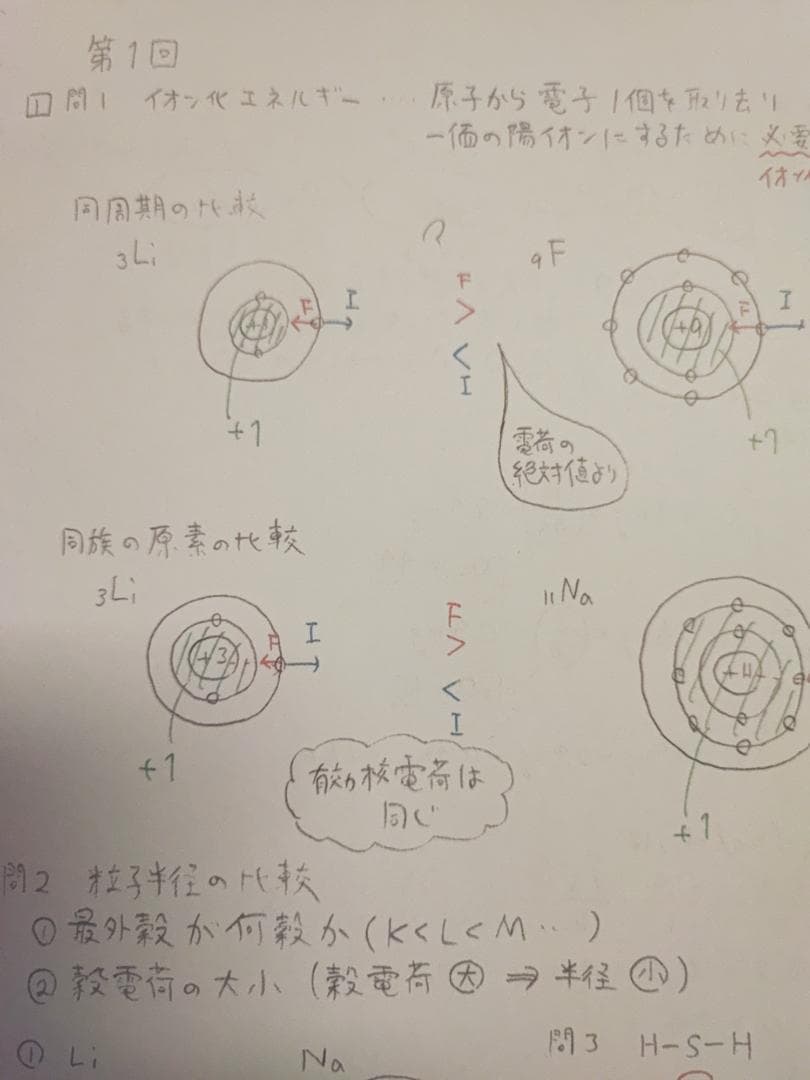 第1回
1 問1 イオン化エネルギー … 原子から電子1個を取り去り
一価の陽イオンにするために必要
イオン
同周期の比較
₃Li
₉F
F
I
F
>
<
I
+9
F
I
+1
電荷の
絶対値より
同族の原素の比較
₃Li
₁₁Na
+3
F
I
F
>
<
I
+11
+1
有効核電荷は
同じ
+1
問2 粒子半径の比較
① 最外穀が何穀か(K<L<M‥)
② 穀電荷の大小(穀電荷 大 ⇒ 半径 小)
① Li Na
問3 H-S-H